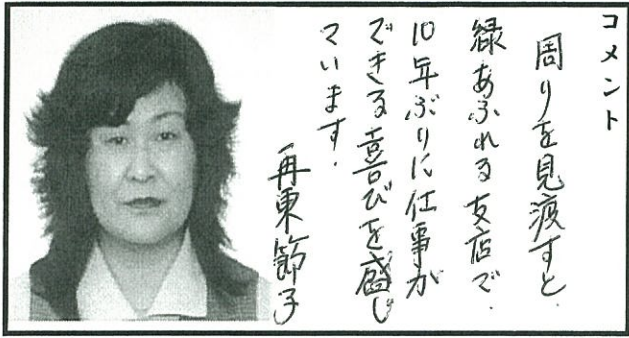 コメント
周りを見渡すと、
緑あふれる支店で、
10年ぶりに仕事が
できる喜びを感じ
ています。
再東節子